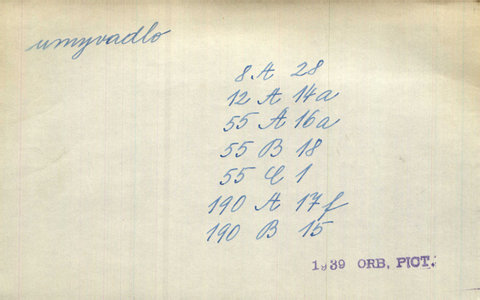 umyvadlo
8 A 28
12 A 14a
55 A 16a
55 B 18
55 C 1
190 A 17f
190 B 15
1939 ORB. PICT.